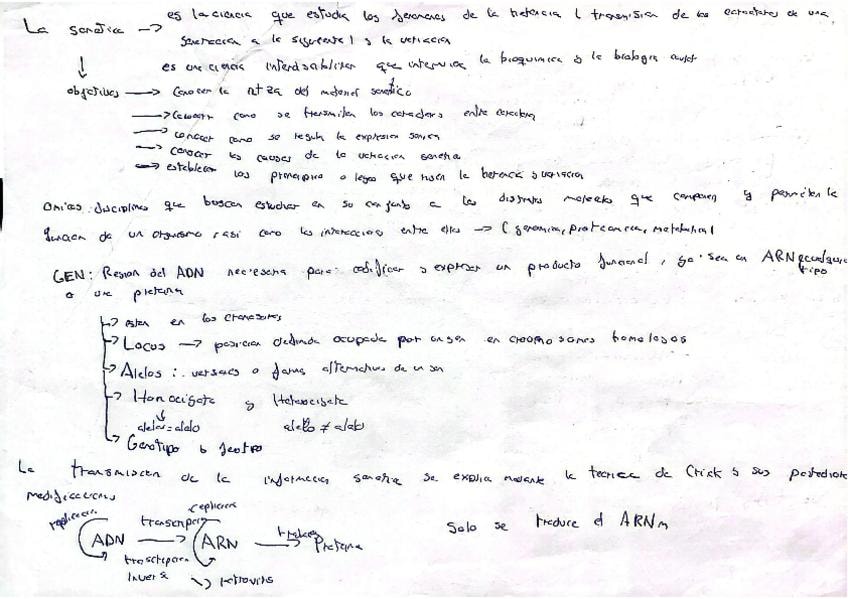 La genetica → es la ciencia que estudia los fenomenos de la herencia ( transmision de los caracteres de una
generacion a la siguiente ) y la variacion
es una ciencia que la bioquimica y la biologia
objetivos → Conocer la del material genetico
→ conocer como se transmiten los caracteres entre
→ conocer como se regula la expresion genica
→ conocer las causas de la variacion genetica
→ establecer los principios o leyes que rigen la herencia y variacion
Omicas: disciplinas que buscan estudiar en su conjunto a las distintas que componen y permiten la
funcion de un organismo, asi como las interacciones entre ellas → (
GEN: Region del ADN necesaria para codificar y expresar un producto funcional, ya sea un ARN
tipo
o una proteina
→ estan en los
→ Locus → posicion definida ocupada por un gen en cromosomas homologos
→ Alelos : versiones o formas alternativas de un gen
→ Homocigoto y Heterocigoto
alelo = alelo alelo ≠ alelo
→ Genotipo
La transmision de la informacion genetica se explica mediante la de Crick y sus
modificaciones
replicacion transcripcion
ADN → ARN → Proteina Solo se traduce el ARNm
transcripcion
inversa → retrovirus